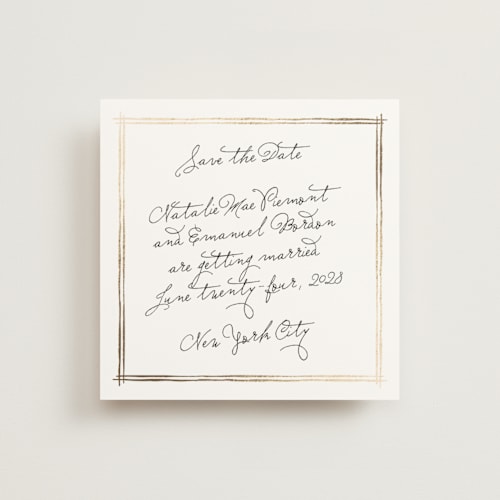 Save the Date
Natalie Mae Piemont
and Emanuel Bordon
are getting married
June twenty-four, 2028
New York City